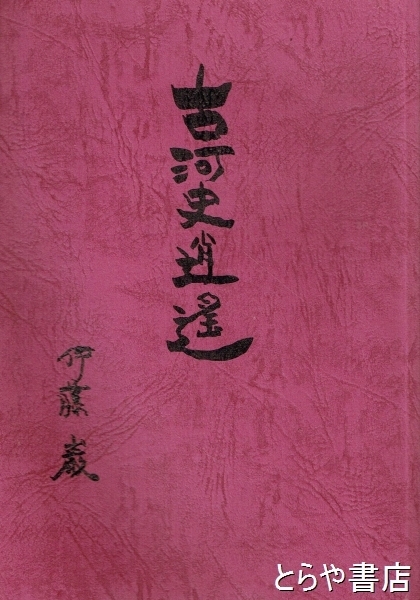 古河史逍遙
伊藤巖
とらや書店